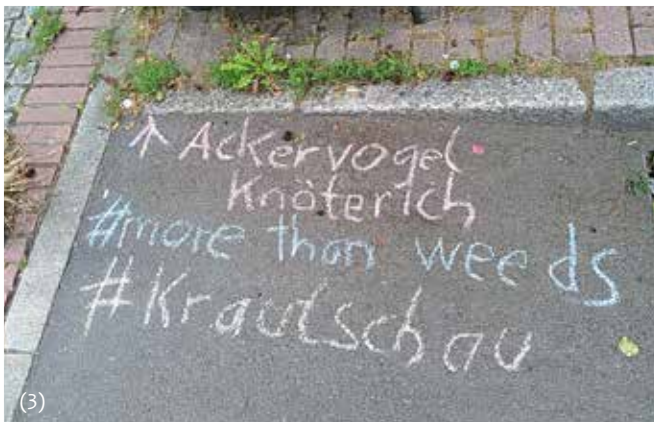 ↑ Ackervogel
Knöterich
#more than weeds
#Krautschau
(3)